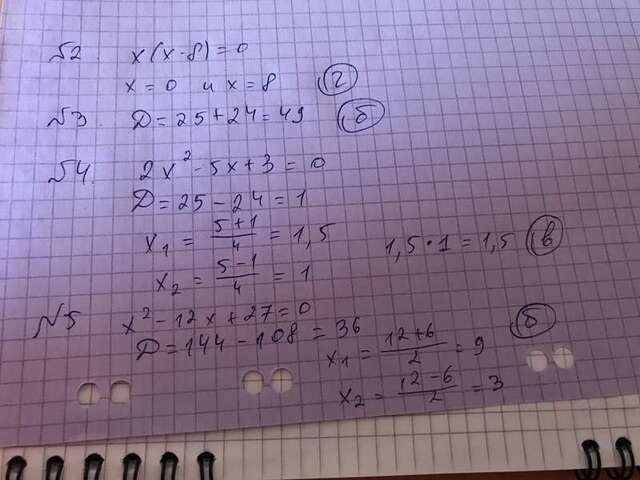 №2. x(x-8)=0
x=0 и x=8 (2)
№3 D=25+24=49 (б)
№4. 2x²-5x+3=0
D=25-24=1
x₁ = (5+1)/4 = 1,5 1,5·1=1,5 (в)
x₂ = (5-1)/4 = 1
№5 x²-12x+27=0 (б)
D=144-108=36 x₁ = (12+6)/2 = 9
x₂ = (12-6)/2 = 3